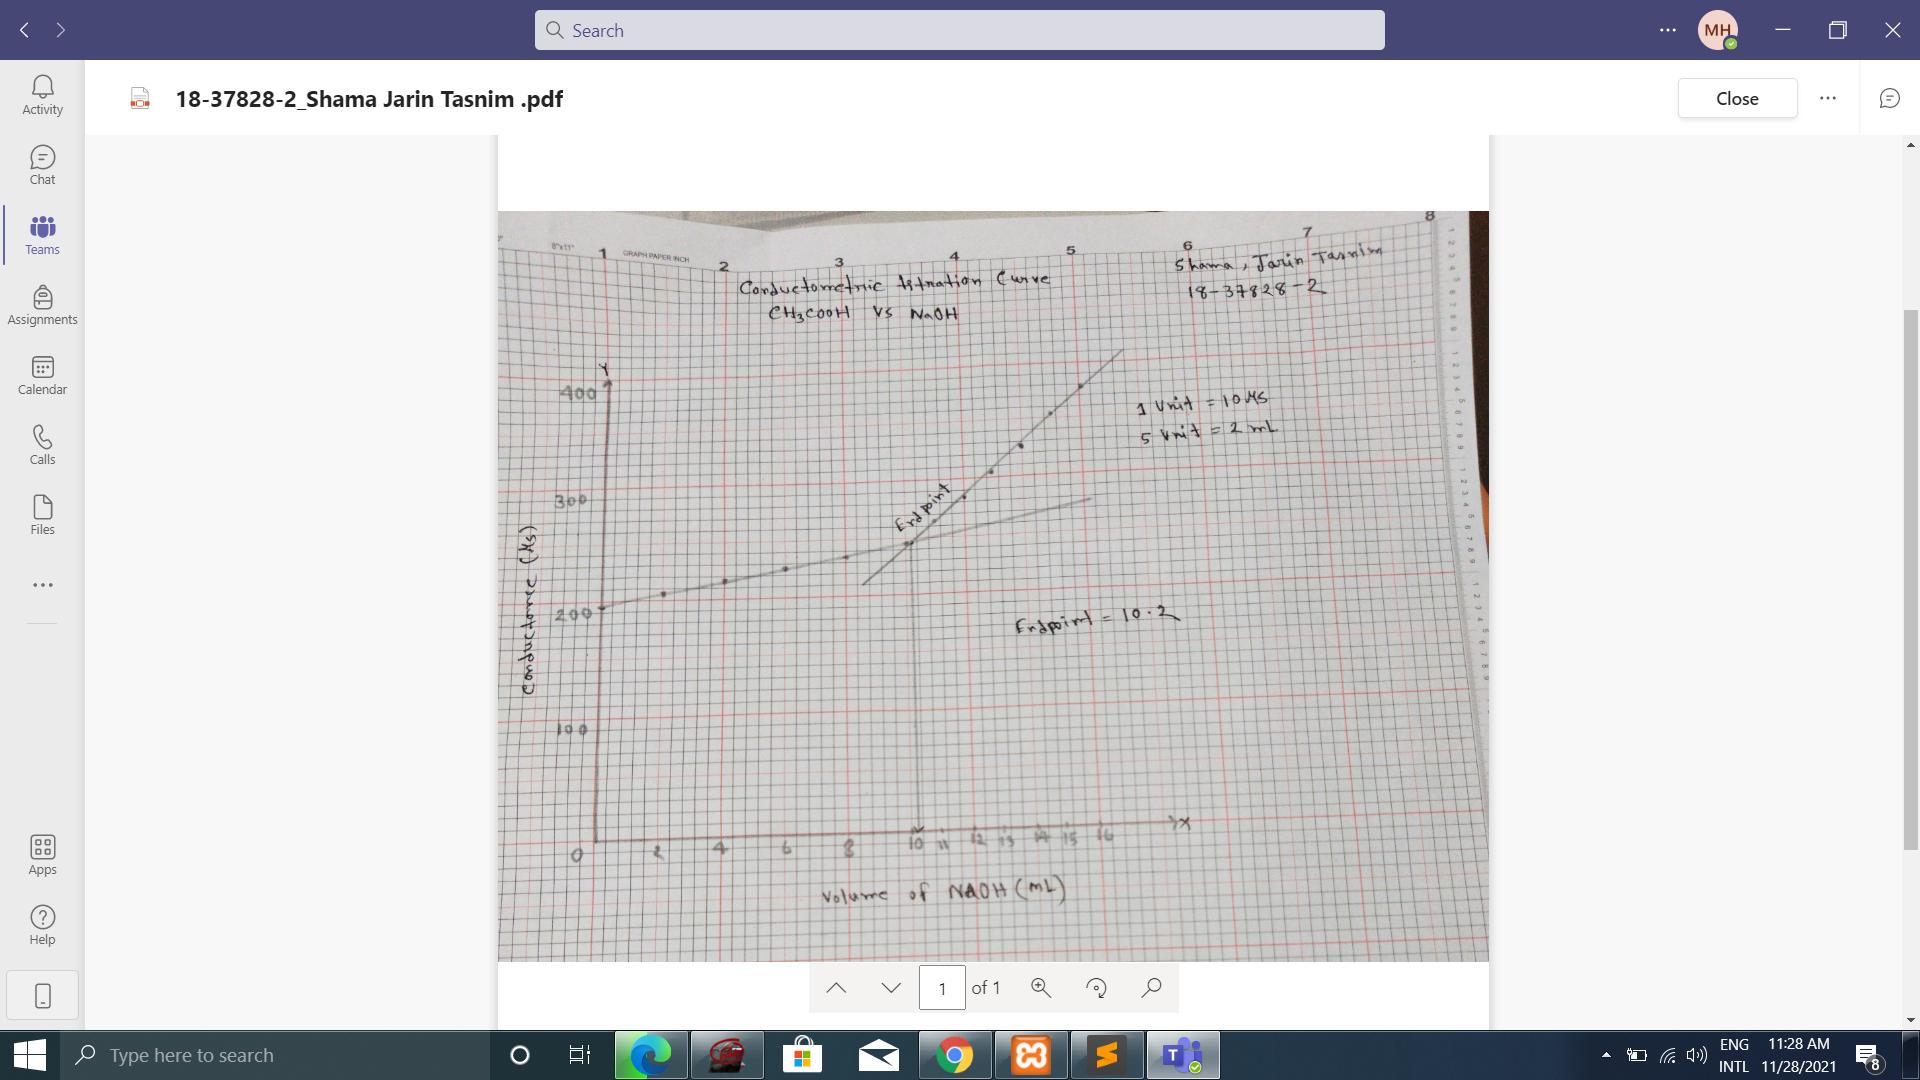 Search
MH
Activity
Chat
Teams
Assignments
Calendar
Calls
Files
Apps
Help
18-37828-2_Shama Jarin Tasnim .pdf
Close
8"x11"
GRAPH PAPER INCH
1 2 3 4 5 6 7 8
Conductometric titration Curve
CH3COOH Vs NaOH
Shama, Jarin Tasnim
18-37828-2
Y
400
300
200
100
0
Conductance (μs)
1 Unit = 10 μs
5 Unit = 2 mL
Endpoint
Endpoint = 10.2
2 4 6 8 10 11 12 13 14 15 16
X
Volume of NAOH (mL)
1 of 1
Type here to search
ENG
INTL
11:28 AM
11/28/2021
8